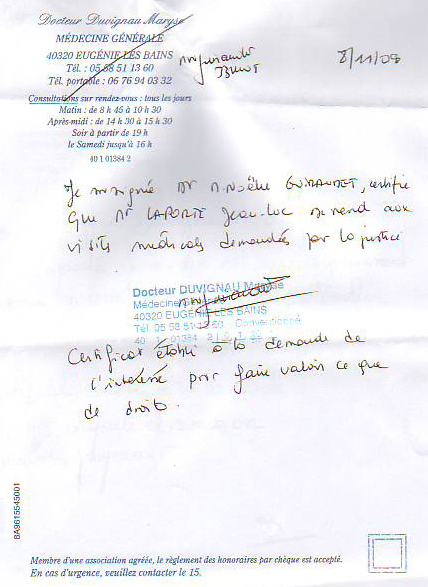 Docteur Duvignau Maryse
MÉDECINE GÉNÉRALE
40320 EUGÉNIE LES BAINS
Tél. : 05 58 51 13 60
Tél. portable : 06 76 94 03 32
Consultations sur rendez-vous : tous les jours
Matin : de 8 h 45 à 10 h 30
Après-midi : de 14 h 30 à 15 h 30
Soir à partir de 19 h
le Samedi jusqu'à 16 h
40 1 01384 2
8/11/08
Je soussignée Dr M.Noëlle GUIRAUDET, certifie
que Mr LAPORTE Jean-Luc se rend aux
visites médicales demandées par la justice
Docteur DUVIGNAU Maryse
Médecine
40320 EUGÉNIE LES BAINS
Tél. 05 58 51 13 60 Conventionné
40 1 01384 2
Certificat établi à la demande de
l'intéressé pour faire valoir ce que
de droit.
8A9615545001
Membre d'une association agréée, le règlement des honoraires par chèque est accepté.
En cas d'urgence, veuillez contacter le 15.